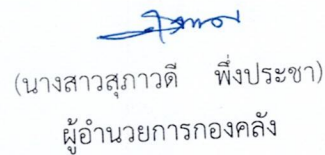 (นางสาวสุภาวดี พึ่งประชา)
ผู้อำนวยการกองคลัง